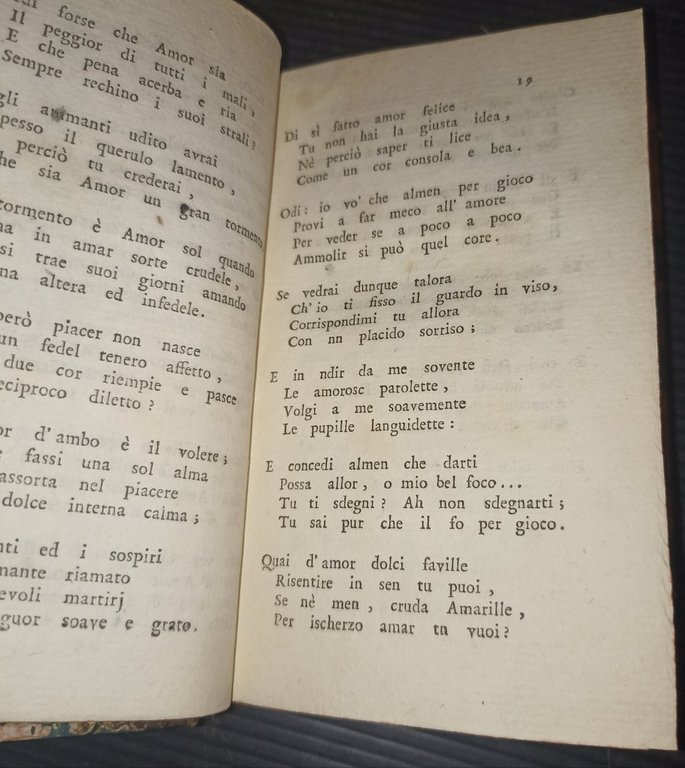 forse che Amor sia
Il peggior di tutti i mali,
E che pena acerba e ria
Sempre rechino i suoi strali?
gli animanti udito avrai
pesso il querulo lamento,
perciò tu crederai,
he sia Amor un gran tormento
tormento è Amor sol quando
na in amar sorte crudele,
si trae suoi giorni amando
na altera ed infedele.
però piacer non nasce
un fedel tenero affetto,
due cor riempie e pasce
eciproco diletto?
or d'ambo è il volere;
fassi una sol alma
assorta nel piacere
dolce interna calma;
nti ed i sospiri
mante riamato
evoli martirj
guor soave e grato.
19
Di sì fatto amor felice
Tu non hai la giusta idea,
Nè perciò saper ti lice
Come un cor consola e bea.
Odi: io vo' che almen per gioco
Provi a far meco all' amore
Per veder se a poco a poco
Ammolir si può quel core.
Se vedrai dunque talora
Ch' io ti fisso il guardo in viso,
Corrispondimi tu allora
Con nn placido sorriso;
E in ndir da me sovente
Le amorosc parolette,
Volgi a me soavemente
Le pupille languidette:
E concedi almen che darti
Possa allor, o mio bel foco...
Tu ti sdegni? Ah non sdegnarti;
Tu sai pur che il fo per gioco.
Quai d'amor dolci faville
Risentire in sen tu puoi,
Se nè men, cruda Amarille,
Per ischerzo amar tn vuoi?